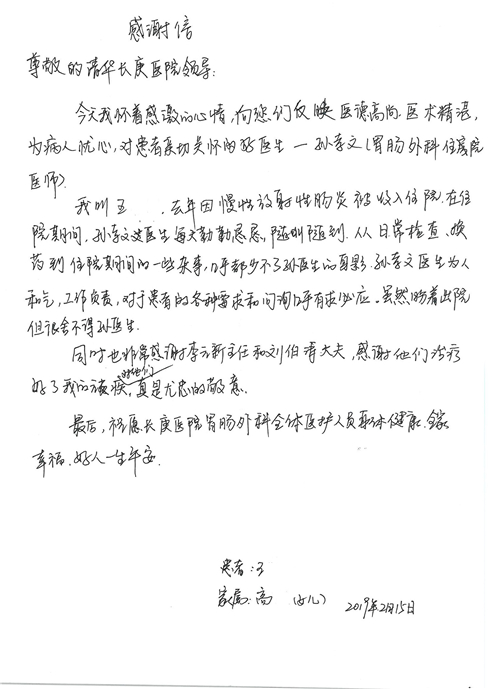 感谢信
尊敬的清华长庚医院领导:
今天我怀着感激的心情,向您们反映医德高尚,医术精湛,
为病人忧心,对患者亲切关怀的好医生—孙孝文(胃肠外科住院
医师)
我叫王 ,去年因慢性放射性肠炎被收入住院.在住
院期间,孙孝文医生每天勤勤恳恳,随叫随到.从日常检查、换
药到住院期间的一些杂事,几乎都少不了孙医生的身影.孙孝文医生为人
和气,工作负责,对于患者的各种需求和问询几乎有求必应.虽然盼着出院
但很舍不得孙医生.
同时也非常感谢李元新主任和刘伯涛大夫,感谢他们治疗
好了我的顽疾,对他们真是尤忠的敬意.
最后,祝愿长庚医院胃肠外科全体医护人员身体健康.全家
幸福.好人一生平安.
患者:王
家属:高 (女儿) 2019年2月15日